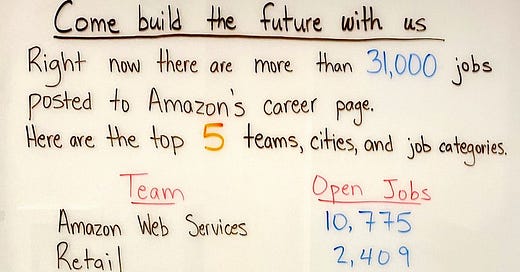 Come build the future with us
Right now there are more than 31,000 jobs
posted to Amazon's career page.
Here are the top 5 teams, cities, and job categories.
Team Open Jobs
Amazon Web Services 10,775
Retail 2,409